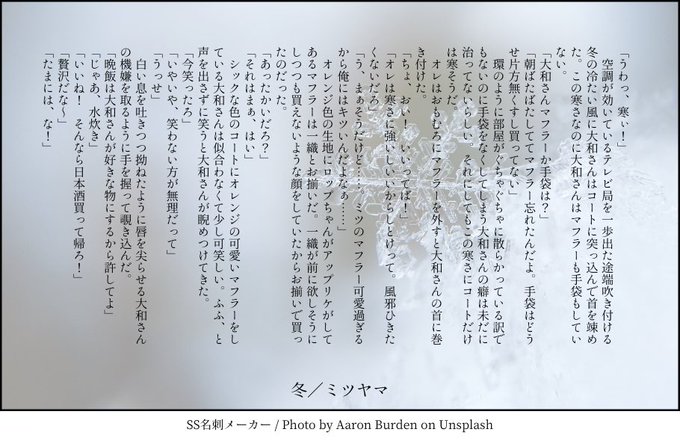 「うわっ、寒い！」
　空調が効いているテレビ局を一歩出た途端吹き付ける
冬の冷たい風に大和さんはコートに突っ込んで首を竦め
た。この寒さなのに大和さんはマフラーも手袋もしてい
ない。
「大和さんマフラーか手袋は？」
「朝ばたばたしててマフラー忘れたんだよ。手袋はどう
せ片方無くすし買ってない」
　環のように部屋がぐちゃぐちゃに散らかっている訳で
もないのに手袋をなくしてしまう大和さんの癖は未だに
治ってないらしい。それにしてもこの寒さにコートだけ
は寒そうだ。
　オレはおもむろにマフラーを外すと大和さんの首に巻
き付けた。
「ちょ、おい！　いいってば！」
「オレは寒さに強いしいいからしとけって。風邪ひきた
くないだろ」
「う、まぁそうだけど……。ミツのマフラー可愛過ぎる
から俺にはキツいんだよなぁ……」
　オレンジ色の生地にロップちゃんがアップリケがして
あるマフラーは一織とお揃いだ。一織が前に欲しそうに
しつつも買えないような顔をしていたからお揃いで買っ
たのだった。
「あったかいだろ？」
「それはまぁ、はい」
　シックな色のコートにオレンジの可愛いマフラーをし
ている大和さんは似合わなくて少し可笑しい。ふふ、と
声を出さずに笑うと大和さんが睨めつけてきた。
「今笑ったろ」
「いやいや、笑わない方が無理だって」
「うっせ」
　白い息を吐きつつ拗ねたように唇を尖らせる大和さん
の機嫌を取るように手を握って覗き込んだ。
「晩飯は大和さんが好きな物にするから許してよ」
「じゃあ、水炊き」
「いいね！　そんなら日本酒買って帰ろ！」
「贅沢だな〜」
「たまには、な！」
冬／ミツヤマ
SS名刺メーカー / Photo by Aaron Burden on Unsplash